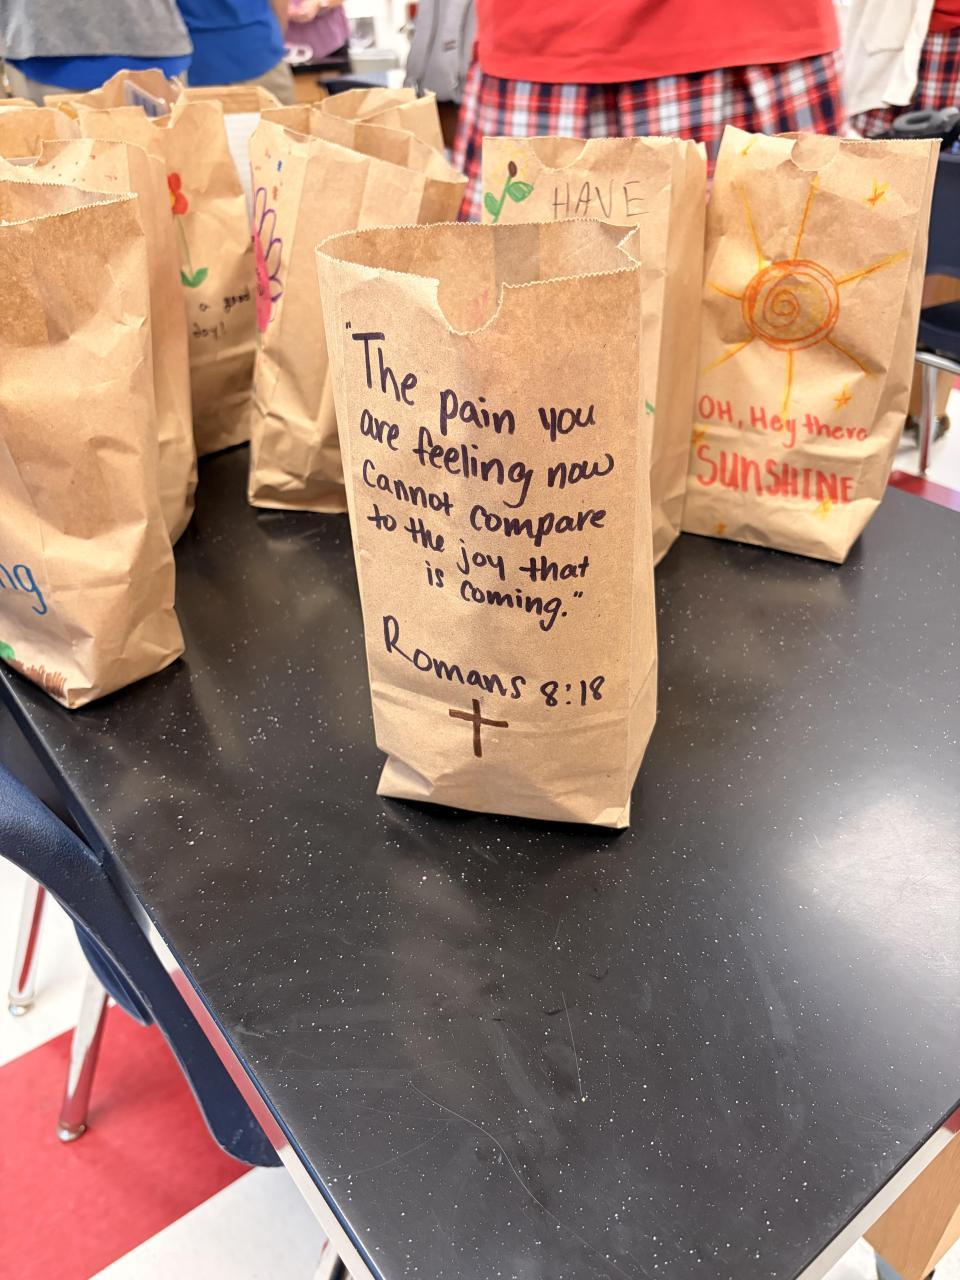 "The pain you
are feeling now
Cannot compare
to the joy that
is coming."
Romans 8:18
HAVE
OH, Hey there
SUNSHINE
a good
day!
ng